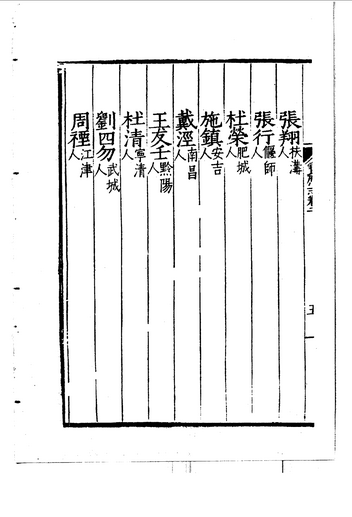 張翔扶溝人
張行偃師人
杜榮肥城人
施鎮安吉人
戴溼南昌人
王友壬黔陽人
杜清寧清人
劉四勿武城人
周禋江津人
五